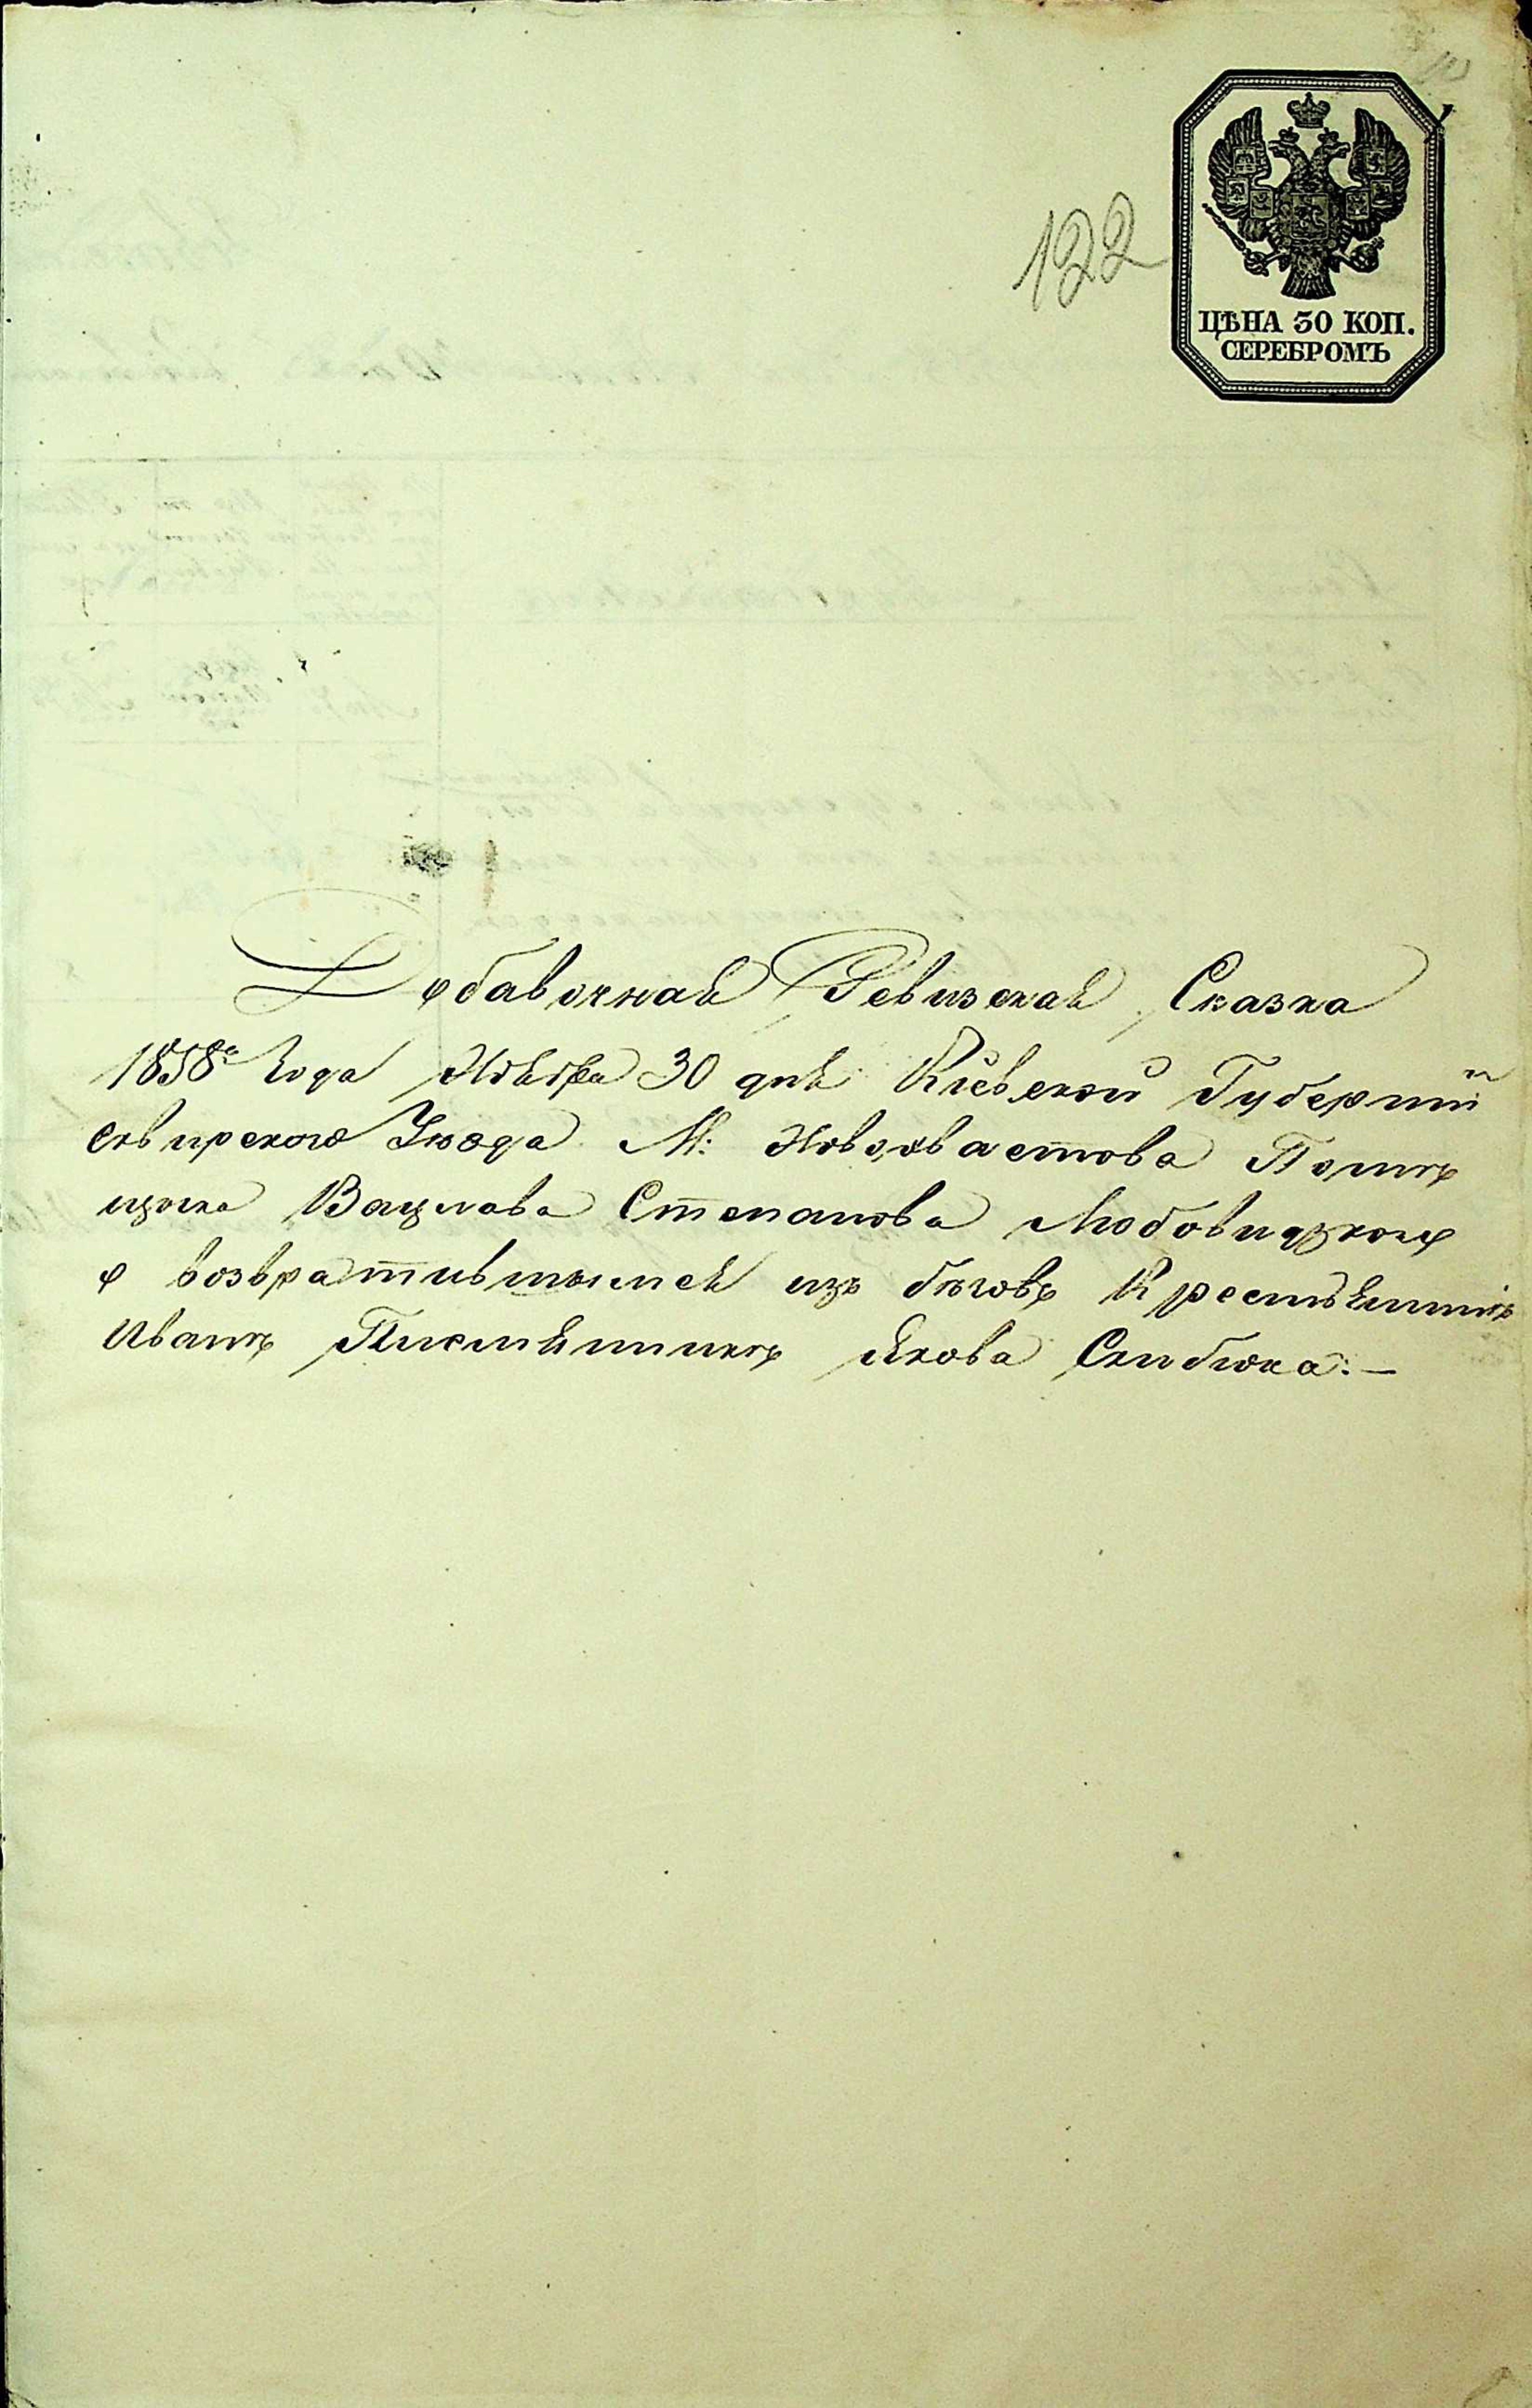 122
ЦѢНА 30 КОП.
СЕРЕБРОМЪ
Добавочная Ревизская Сказка
1858го Года Ноября 30 дня Кіевской Губерніи
Сквирского Уѣзда М: Новохвастова Помѣ
щика Вацлава Степанова Любовидзкого
о возвратившымся изъ бѣговъ Крестьянинѣ
Иванѣ Якова Скибюка:—